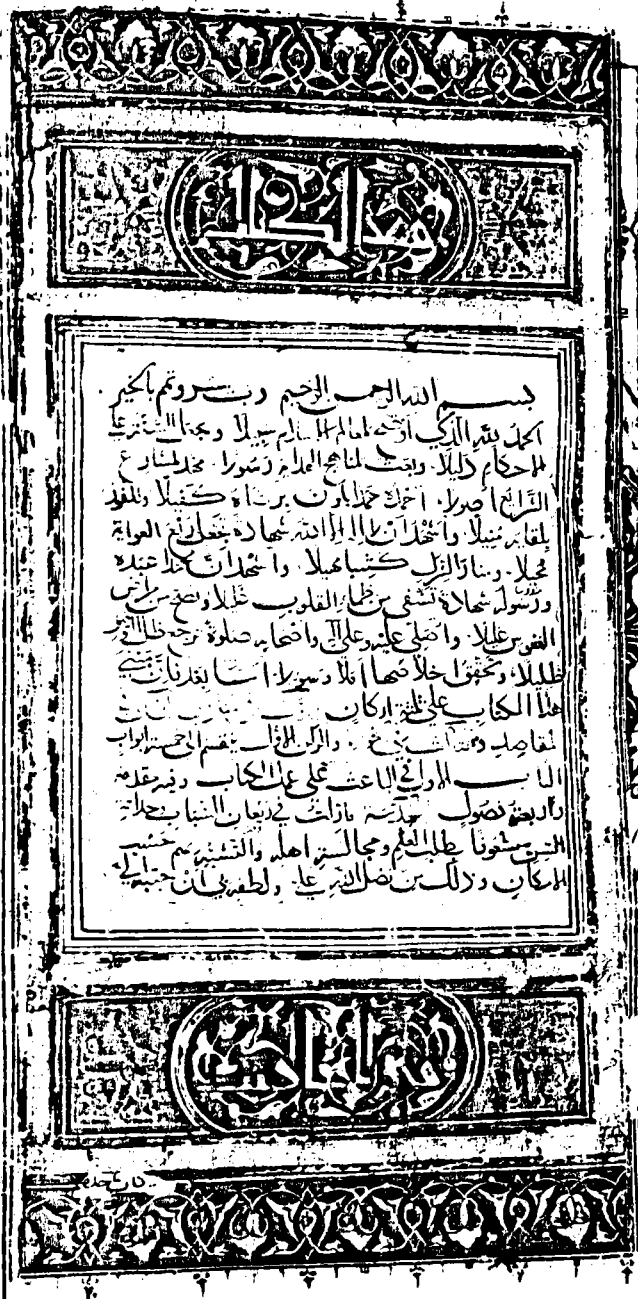 هذا الكتاب
بسم الله الرحمن الرحيم رب يسر وتمم بالخير
الحمد لله الذي أوضح لمعالم الاسلام سبيلا وجعل السنة على
الاحكام دليلا وبعث لمناهج الهداية رسولا مهد لمشارع
الشرائع اصولا احمده حمدا يكون برضاه كفيلا وللفوز
بلقائه منيلا واشهد ان لا اله الا الله شهادة تجعل ربع الغواية
محيلا ومنار الزلل كثيبا مهيلا واشهد ان محمدا عبده
ورسوله شهادة تشفي من ظماء القلوب غليلا وتصح من مراض
النفوس عليلا واصلي عليه وعلى آله واصحابه صلوة
ظليلا وتحقق اخلاصها املا وسولا اما بعد فان مبنى
هذا الكتاب على ثلثة اركان
المقاصد والركن الاول ينقسم الى خمسة ابواب
الباب الاول في الباعث على عمل الكتاب وفيه مقدمة
واربعة فصول مقدمة ما زلت في ريعان الشباب وحداثة
السن مشغوفا بطلب العلم ومجالسة اهله والتشبه بهم حسب
الامكان وذلك من فضل الله علي ولطفه بي ان حببه الي